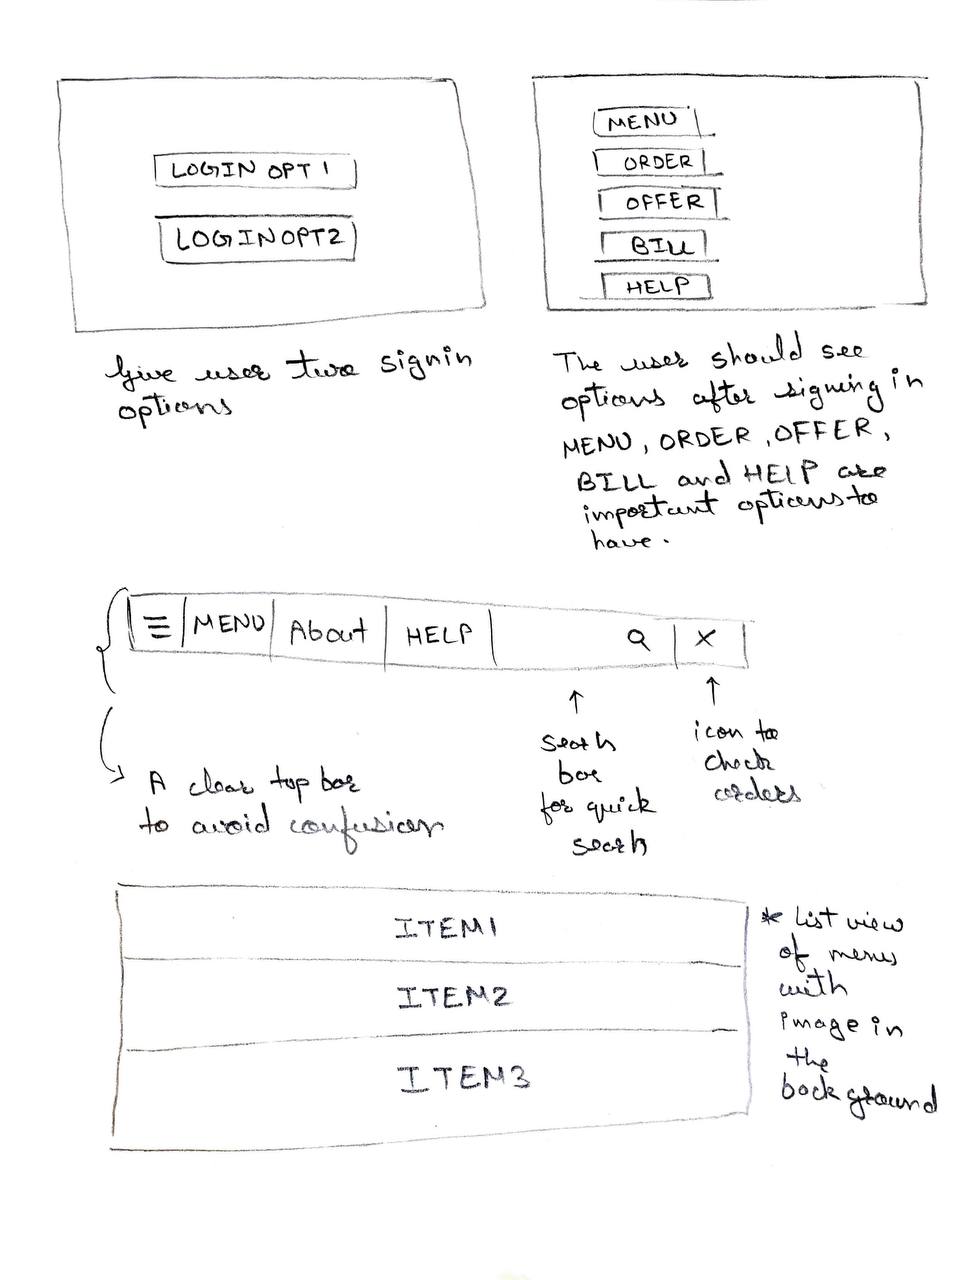 LOGIN OPT 1
LOGIN OPT2
Give user two signin
options
MENU
ORDER
OFFER
BILL
HELP
The user should see
options after signing in
MENU, ORDER, OFFER,
BILL and HELP are
important options to
have.
MENU About HELP
A clear top bar
to avoid confusion
search
bar
for quick
search
icon to
check
orders
ITEM1
ITEM2
ITEM3
* List view
of menus
with
image in
the
background